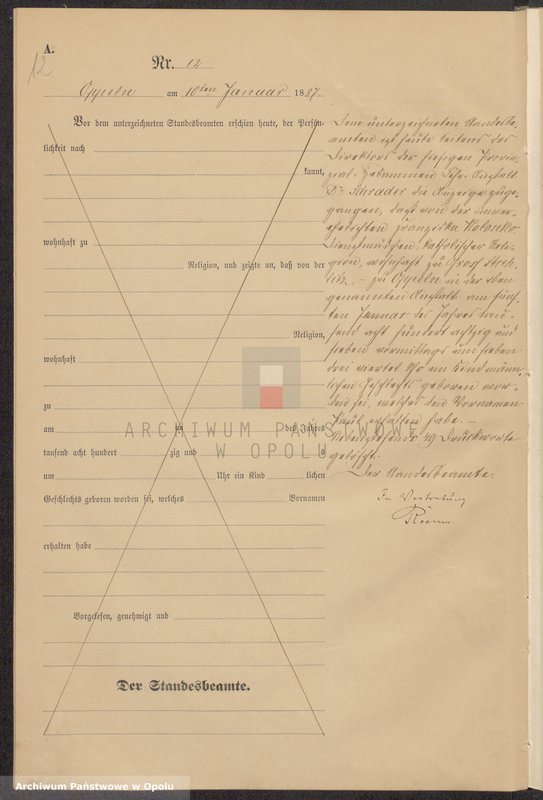 A.
12
Nr. 12
Oppeln am 10ten Januar 1887.
Vor dem unterzeichneten Standesbeamten erschien heute, der Persön-
lichkeit nach
kannt,
wohnhaft zu
Religion, und zeigte an, daß von der
Religion,
wohnhaft
zu
am ten des Jahres
tausend acht hundert zig und
um Uhr ein Kind lichen
Geschlechts geboren worden sei, welches Vornamen
erhalten habe
Vorgelesen, genehmigt und
Der Standesbeamte.
Dem unterzeichneten Standesbe-
amten ist heute seitens des
Direktors der hiesigen Provin-
zial-Hebammen Lehr-Anstalt
Dr Schrader die Anzeige zuge-
gangen, daß von der unver-
ehelichten Franziska
Dienstmädchen, katholischer Reli-
gion, wohnhaft zu Groß Streh-
litz, zu Oppeln in der oben
genannten Anstalt am fünf-
ten Januar des Jahres tau-
send acht hundert achtzig und
sieben vormittags um sieben
drei viertel Uhr ein Kind männ-
lichen Geschlechts geboren wor-
den sei, welches den Vornamen
Paul erhalten habe.
Nebenstehende Druckworte
gelöscht.
Der Standesbeamte.
In Vertretung
ARCHIWUM PAŃSTWOWE
W OPOLU
Archiwum Państwowe w Opolu